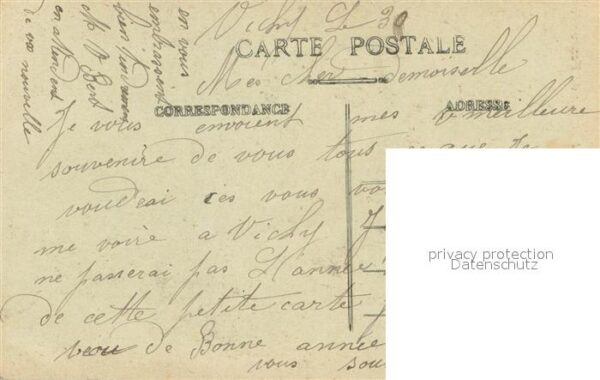 Vichy Le 30
CARTE POSTALE
Mes cher demoiselle
CORRESPONDANCE
ADRESSE
Je vous envoient mes meilleure
souvenire de vous tous ce que Je
voudrai ces vous
me voire a Vichy
ne passerai pas L'année
de cette petite carte
de Bonne année
vous
en vous
embrassant
bien
M
en attendant
de vos nouvelle
privacy protection
Datenschutz